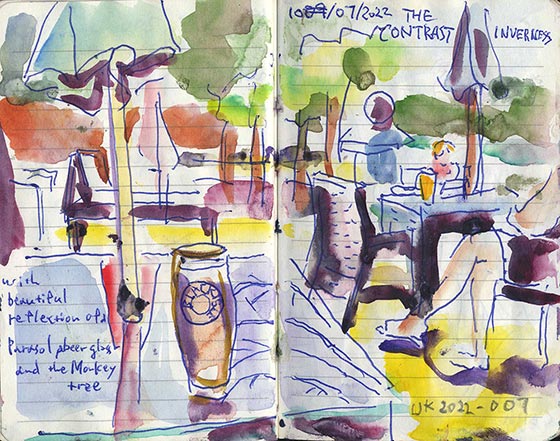 10/07/2022 THE
CONTRAST INVERNESS
with
beautiful
reflexion of a
Parasol, beer glas
and the Monkey
tree
UK2022-007